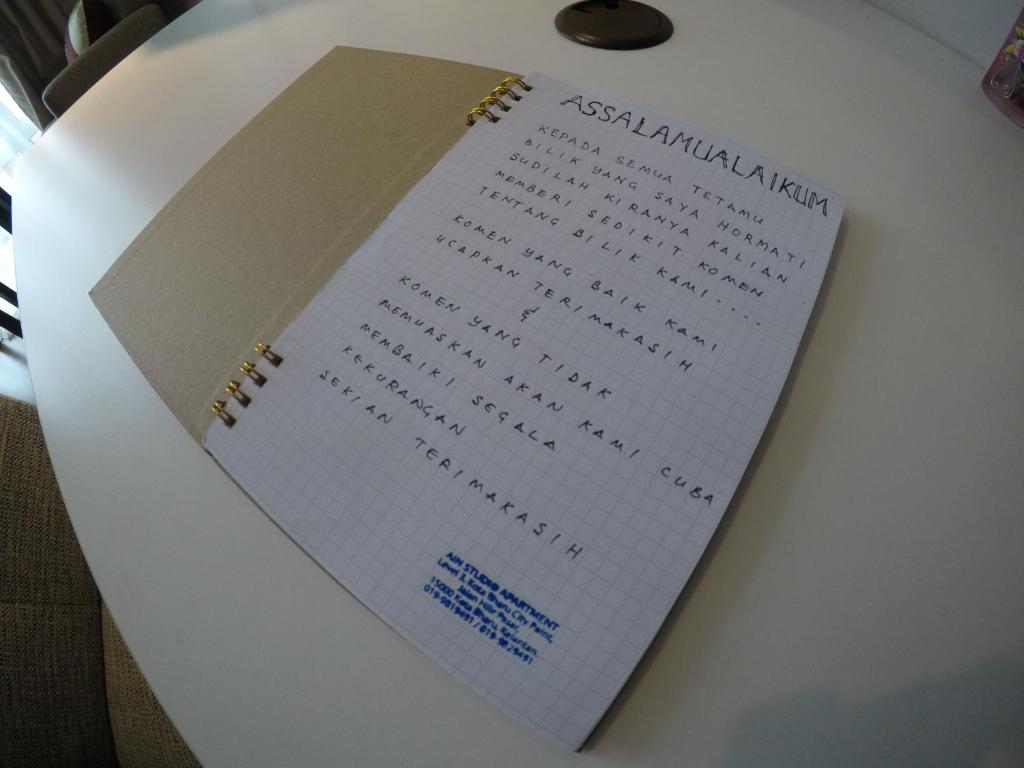 ASSALAMUALAIKUM
KEPADA SEMUA TETAMU
BILIK YANG SAYA HORMATI
SUDILAH KIRANYA KALIAN
MEMBERI SEDIKIT KOMEN
TENTANG BILIK KAMI - - - -
KOMEN YANG BAIK KAMI
UCAPKAN TERIMAKASIH
&
KOMEN YANG TIDAK
MEMUASKAN AKAN KAMI CUBA
MEMBAIKI SEGALA
KEKURANGAN
SEKIAN TERIMAKASIH
AIN STUDIO APARTMENT
Level 3, Kota Bharu City Point,
Jalan
15000 Kota Bharu, Kelantan.